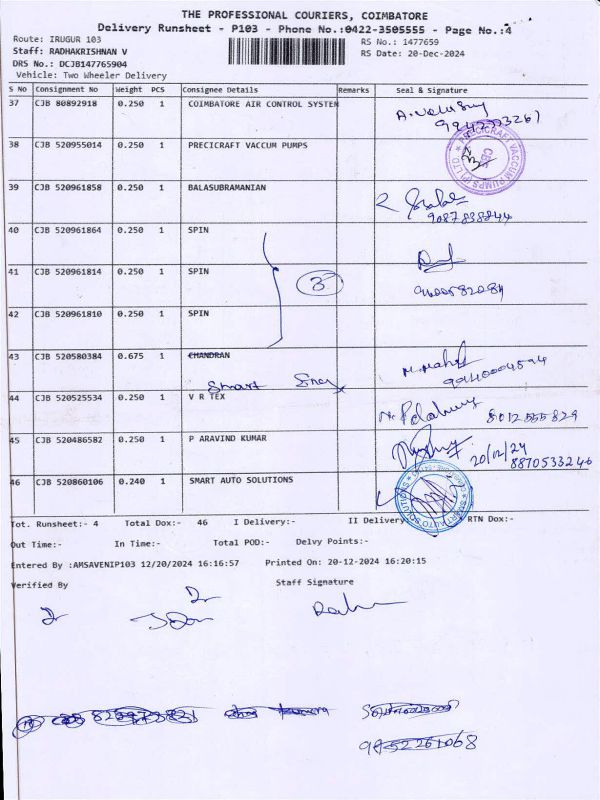 THE PROFESSIONAL COURIERS, COIMBATORE
Delivery Runsheet - P103 - Phone No.:0422-3505555 - Page No.:4
Route: IRUGUR 103 RS No.: 1477659
Staff: RADHAKRISHNAN V RS Date: 20-Dec-2024
DRS No.: DCJB147765904
Vehicle: Two Wheeler Delivery
S No Consignment No Weight PCS Consignee Details Remarks Seal & Signature
37 CJB 80892918 0.250 1 COIMBATORE AIR CONTROL SYSTEM
38 CJB 520955014 0.250 1 PRECICRAFT VACCUM PUMPS
39 CJB 520961858 0.250 1 BALASUBRAMANIAN
9087838844
40 CJB 520961864 0.250 1 SPIN
41 CJB 520961814 0.250 1 SPIN
3
9600582084
42 CJB 520961810 0.250 1 SPIN
43 CJB 520580384 0.675 1 CHANDRAN
Smart
44 CJB 520525534 0.250 1 V R TEX
8012555829
45 CJB 520486582 0.250 1 P ARAVIND KUMAR
20/12/24
8870533246
46 CJB 520860106 0.240 1 SMART AUTO SOLUTIONS
Tot. Runsheet:- 4 Total Dox:- 46 I Delivery:- II Delivery RTN Dox:-
Out Time:- In Time:- Total POD:- Delvy Points:-
Entered By :AMSAVENIP103 12/20/2024 16:16:57 Printed On: 20-12-2024 16:20:15
Verified By Staff Signature
9952261068